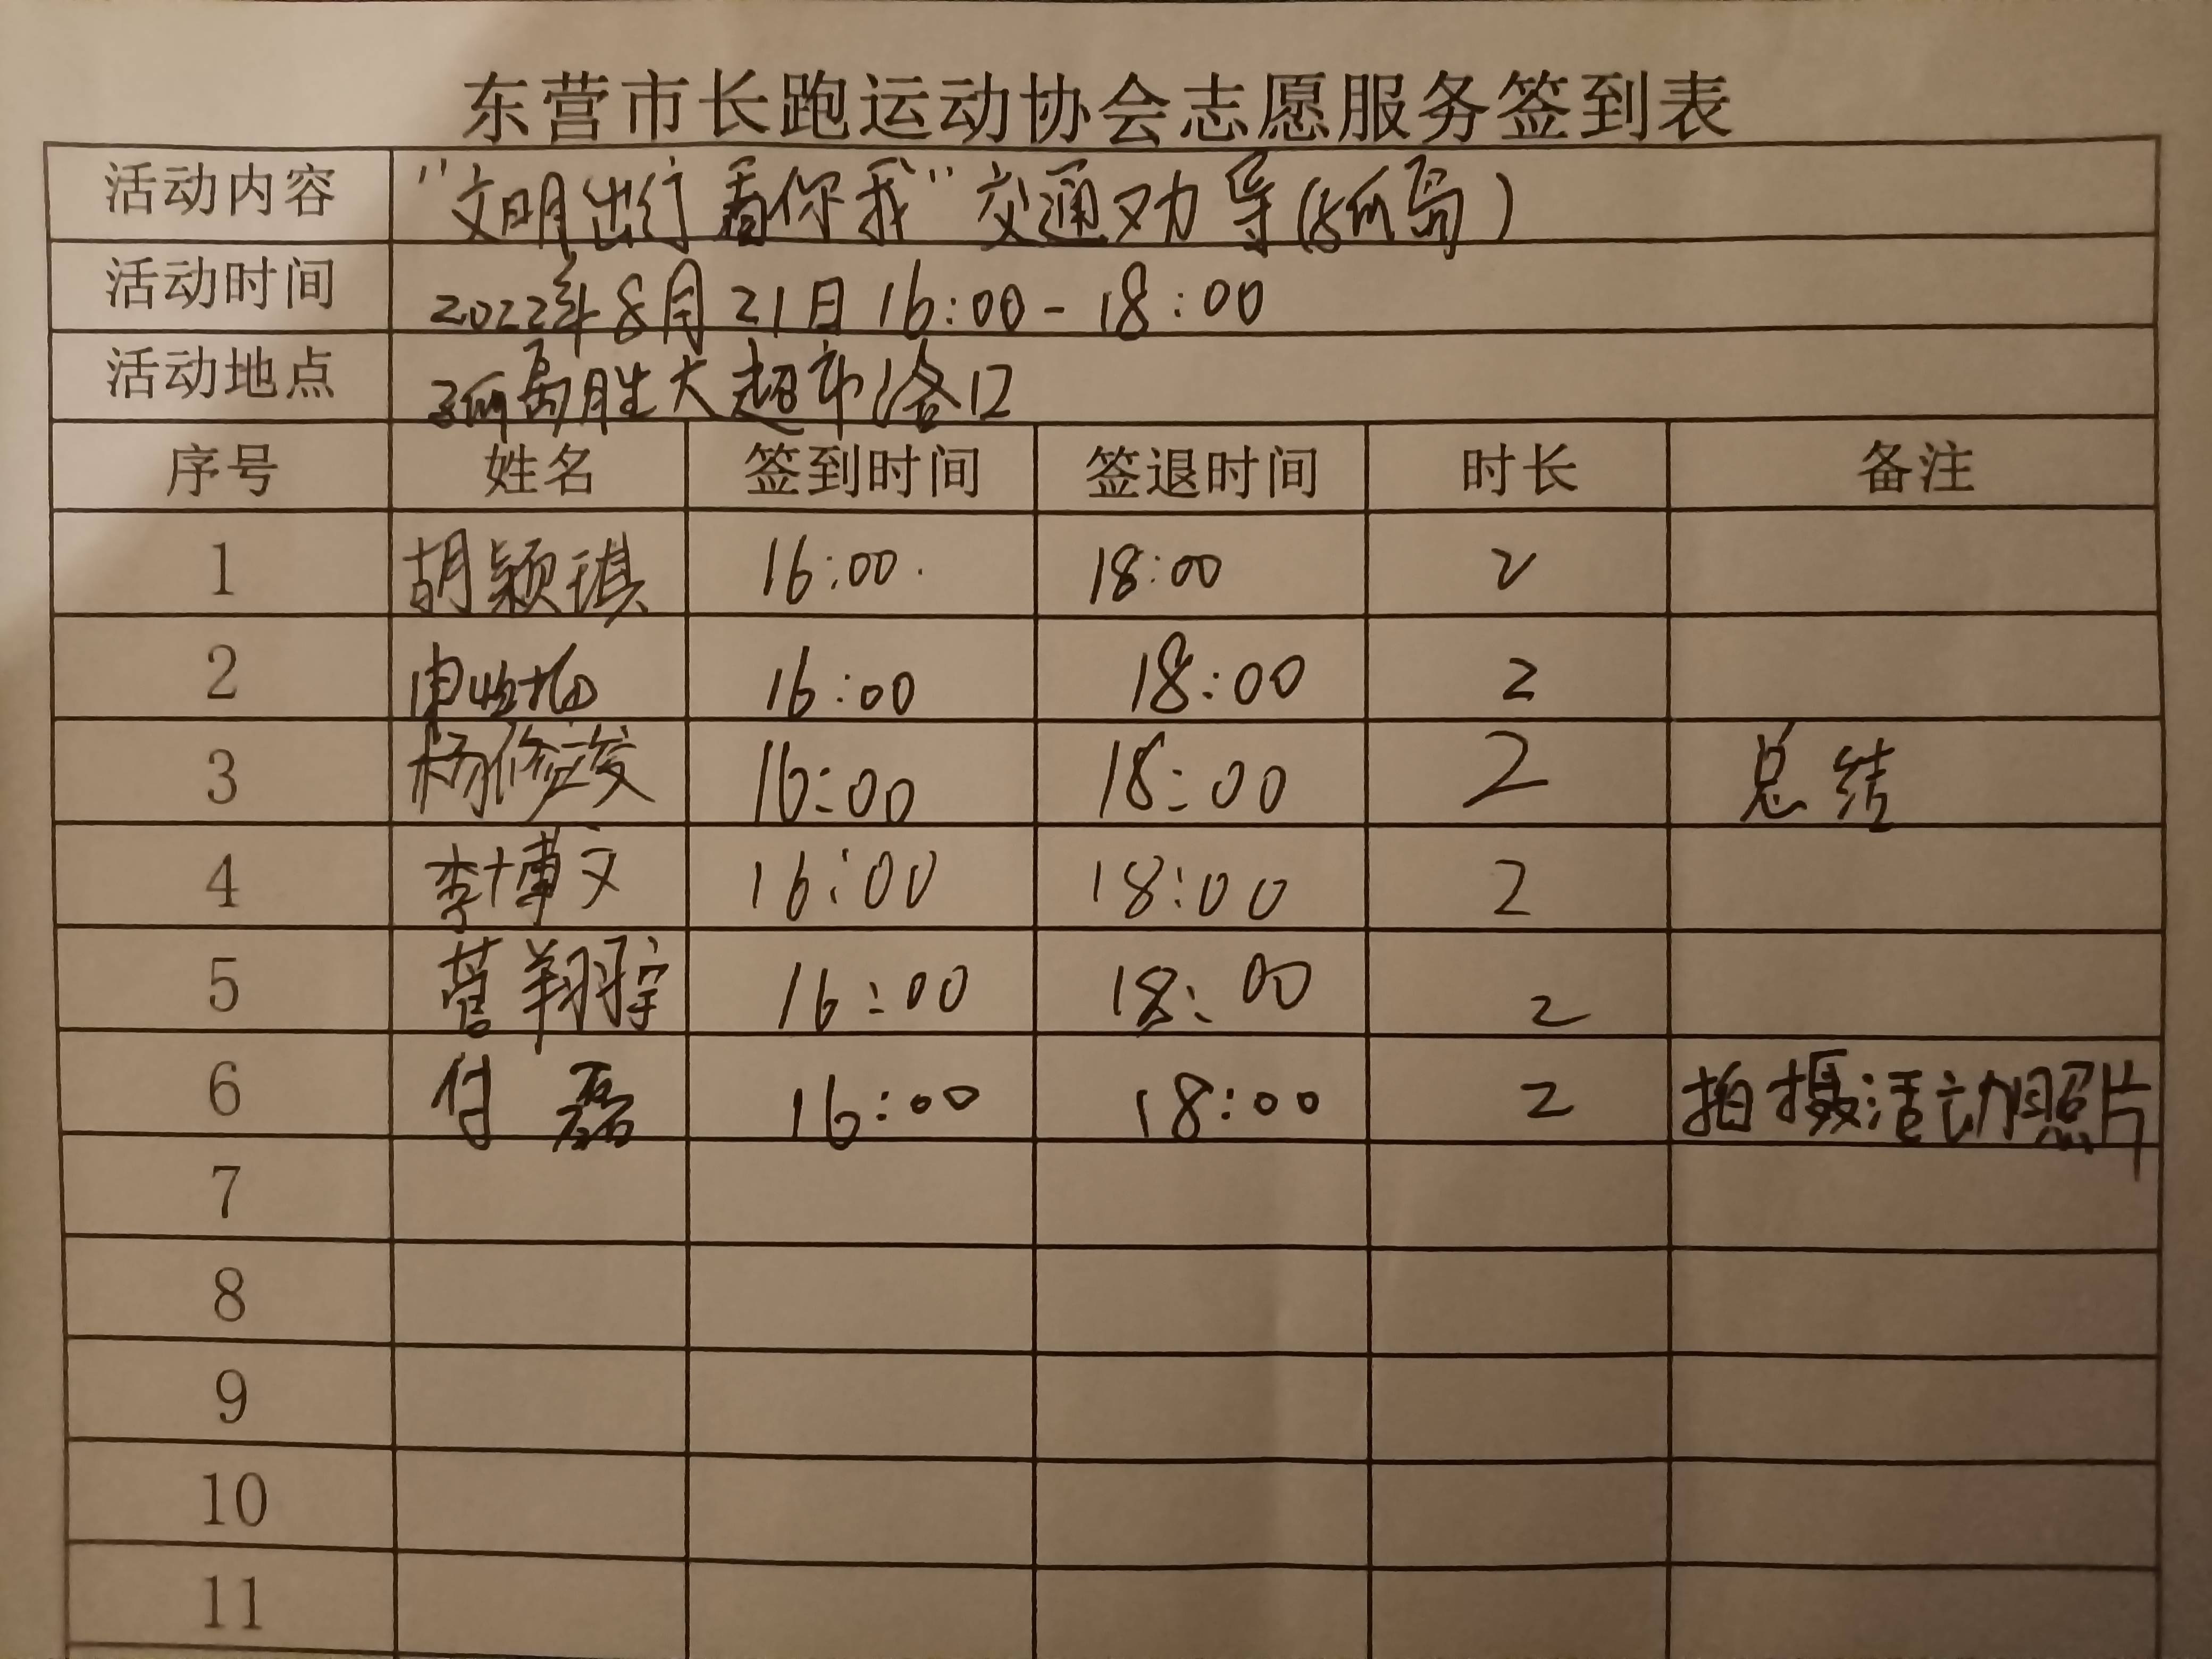 东营市长跑运动协会志愿服务签到表
活动内容 "文明出行看你我"交通劝导(孤岛)
活动时间 2022年8月21日16:00-18:00
活动地点 孤岛胜大超市路口
序号 姓名 签到时间 签退时间 时长 备注
1 胡颖琪 16:00 18:00 2
2 16:00 18:00 2
3 杨修竣 16:00 18:00 2 总结
4 李博文 16:00 18:00 2
5 营翔宇 16:00 18:00 2
6 付磊 16:00 18:00 2 拍摄活动照片
7
8
9
10
11